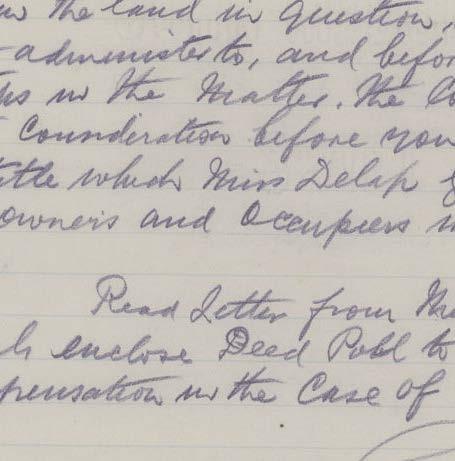 the land in question,
administer to, and befor
in the Matter. the Co
Consideration before you
title which Miss Delap
owners and Occupiers
Read Letter from
enclose Deed Poll to
pensation in the Case of